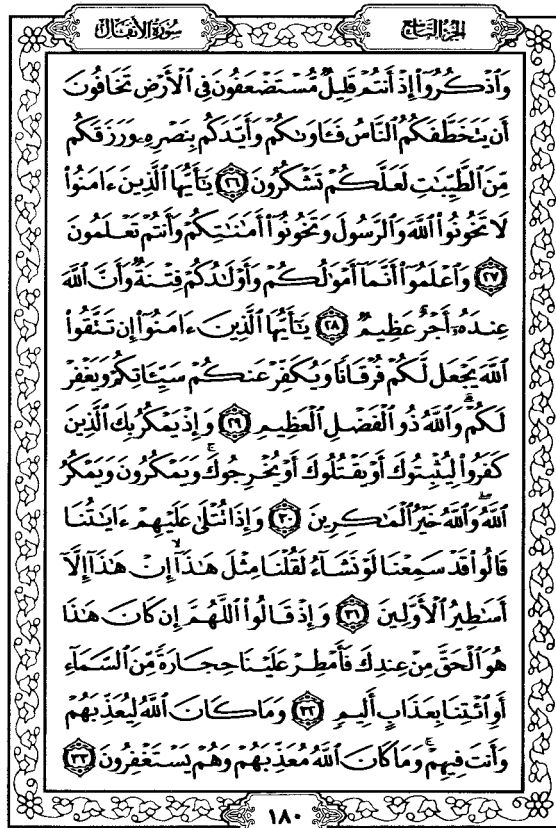 سورة الأنفال
الجزء التاسع
وَٱذۡكُرُوٓاْ إِذۡ أَنتُمۡ قَلِيلٞ مُّسۡتَضۡعَفُونَ فِي ٱلۡأَرۡضِ تَخَافُونَ
أَن يَتَخَطَّفَكُمُ ٱلنَّاسُ فَـَٔاوَىٰكُمۡ وَأَيَّدَكُم بِنَصۡرِهِۦ وَرَزَقَكُم
مِّنَ ٱلطَّيِّبَٰتِ لَعَلَّكُمۡ تَشۡكُرُونَ ٢٦ يَٰٓأَيُّهَا ٱلَّذِينَ ءَامَنُواْ
لَا تَخُونُواْ ٱللَّهَ وَٱلرَّسُولَ وَتَخُونُوٓاْ أَمَٰنَٰتِكُمۡ وَأَنتُمۡ تَعۡلَمُونَ
٢٧ وَٱعۡلَمُوٓاْ أَنَّمَآ أَمۡوَٰلُكُمۡ وَأَوۡلَٰدُكُمۡ فِتۡنَةٞ وَأَنَّ ٱللَّهَ
عِندَهُۥٓ أَجۡرٌ عَظِيمٞ ٢٨ يَٰٓأَيُّهَا ٱلَّذِينَ ءَامَنُوٓاْ إِن تَتَّقُواْ
ٱللَّهَ يَجۡعَل لَّكُمۡ فُرۡقَانٗا وَيُكَفِّرۡ عَنكُمۡ سَيِّـَٔاتِكُمۡ وَيَغۡفِرۡ
لَكُمۡۗ وَٱللَّهُ ذُو ٱلۡفَضۡلِ ٱلۡعَظِيمِ ٢٩ وَإِذۡ يَمۡكُرُ بِكَ ٱلَّذِينَ
كَفَرُواْ لِيُثۡبِتُوكَ أَوۡ يَقۡتُلُوكَ أَوۡ يُخۡرِجُوكَۚ وَيَمۡكُرُونَ وَيَمۡكُرُ
ٱللَّهُۖ وَٱللَّهُ خَيۡرُ ٱلۡمَٰكِرِينَ ٣٠ وَإِذَا تُتۡلَىٰ عَلَيۡهِمۡ ءَايَٰتُنَا
قَالُواْ قَدۡ سَمِعۡنَا لَوۡ نَشَآءُ لَقُلۡنَا مِثۡلَ هَٰذَآ إِنۡ هَٰذَآ إِلَّآ
أَسَٰطِيرُ ٱلۡأَوَّلِينَ ٣١ وَإِذۡ قَالُواْ ٱللَّهُمَّ إِن كَانَ هَٰذَا
هُوَ ٱلۡحَقَّ مِنۡ عِندِكَ فَأَمۡطِرۡ عَلَيۡنَا حِجَارَةٗ مِّنَ ٱلسَّمَآءِ
أَوِ ٱئۡتِنَا بِعَذَابٍ أَلِيمٖ ٣٢ وَمَا كَانَ ٱللَّهُ لِيُعَذِّبَهُمۡ
وَأَنتَ فِيهِمۡۚ وَمَا كَانَ ٱللَّهُ مُعَذِّبَهُمۡ وَهُمۡ يَسۡتَغۡفِرُونَ ٣٣
١٨٠